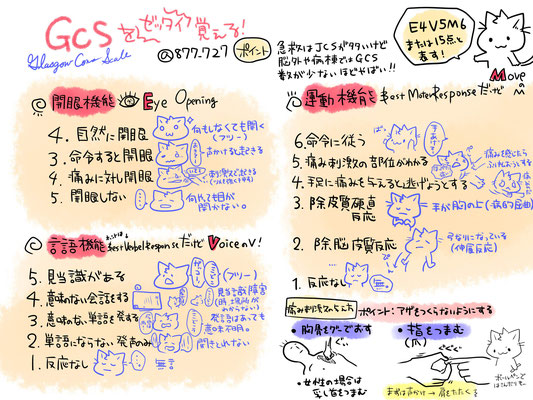 GCSをゼッタイ覚える!
Glasgow Coma Scale
@877-727
ポイント
急救はJCSが多いけど
脳外や病棟ではGCS
数が少ないほどやばい!!
E4V5M6
または15点と
表す!
開眼機能 Eye Opening
4. 自然に開眼
何もしなくても開く
(フリー)
3. 命令すると開眼
声かけると起きる
2. 痛みに対し開眼
刺激で起きる
1. 開眼しない
何しても目が
開かない。
言語機能 Best Verbal Response だけど Voice の V!
5. 見当識がある
(フリー)
4. 意味のない会話をする
見当識障害
(時、場所が
わからない)
3. 意味のない単語を発する
発語はあっても
意味不明。
2. 単語にならない発声のみ
聞きとれない
1. 反応なし
無言
運動機能 Best Motor Response だけど Move の M
6. 命令に従う
5. 痛み刺激の部位がわかる
痛み感じたら
ふれようとする
4. 手足に痛みを与えると逃げようとする
3. 除皮質硬直
反応
手が胸の上(病的屈曲)
2. 除脳皮質反応
弓なりになっている
(伸展反応)
1. 反応なし
無
痛み刺激の与え方
ポイント:アザをつくらないようにする
・胸骨をグーでおす
・女性の場合は
乳し首をつまむ
・指をつまむ
(爪)
ボールペンで
まずは声かけ→肩をたたくる